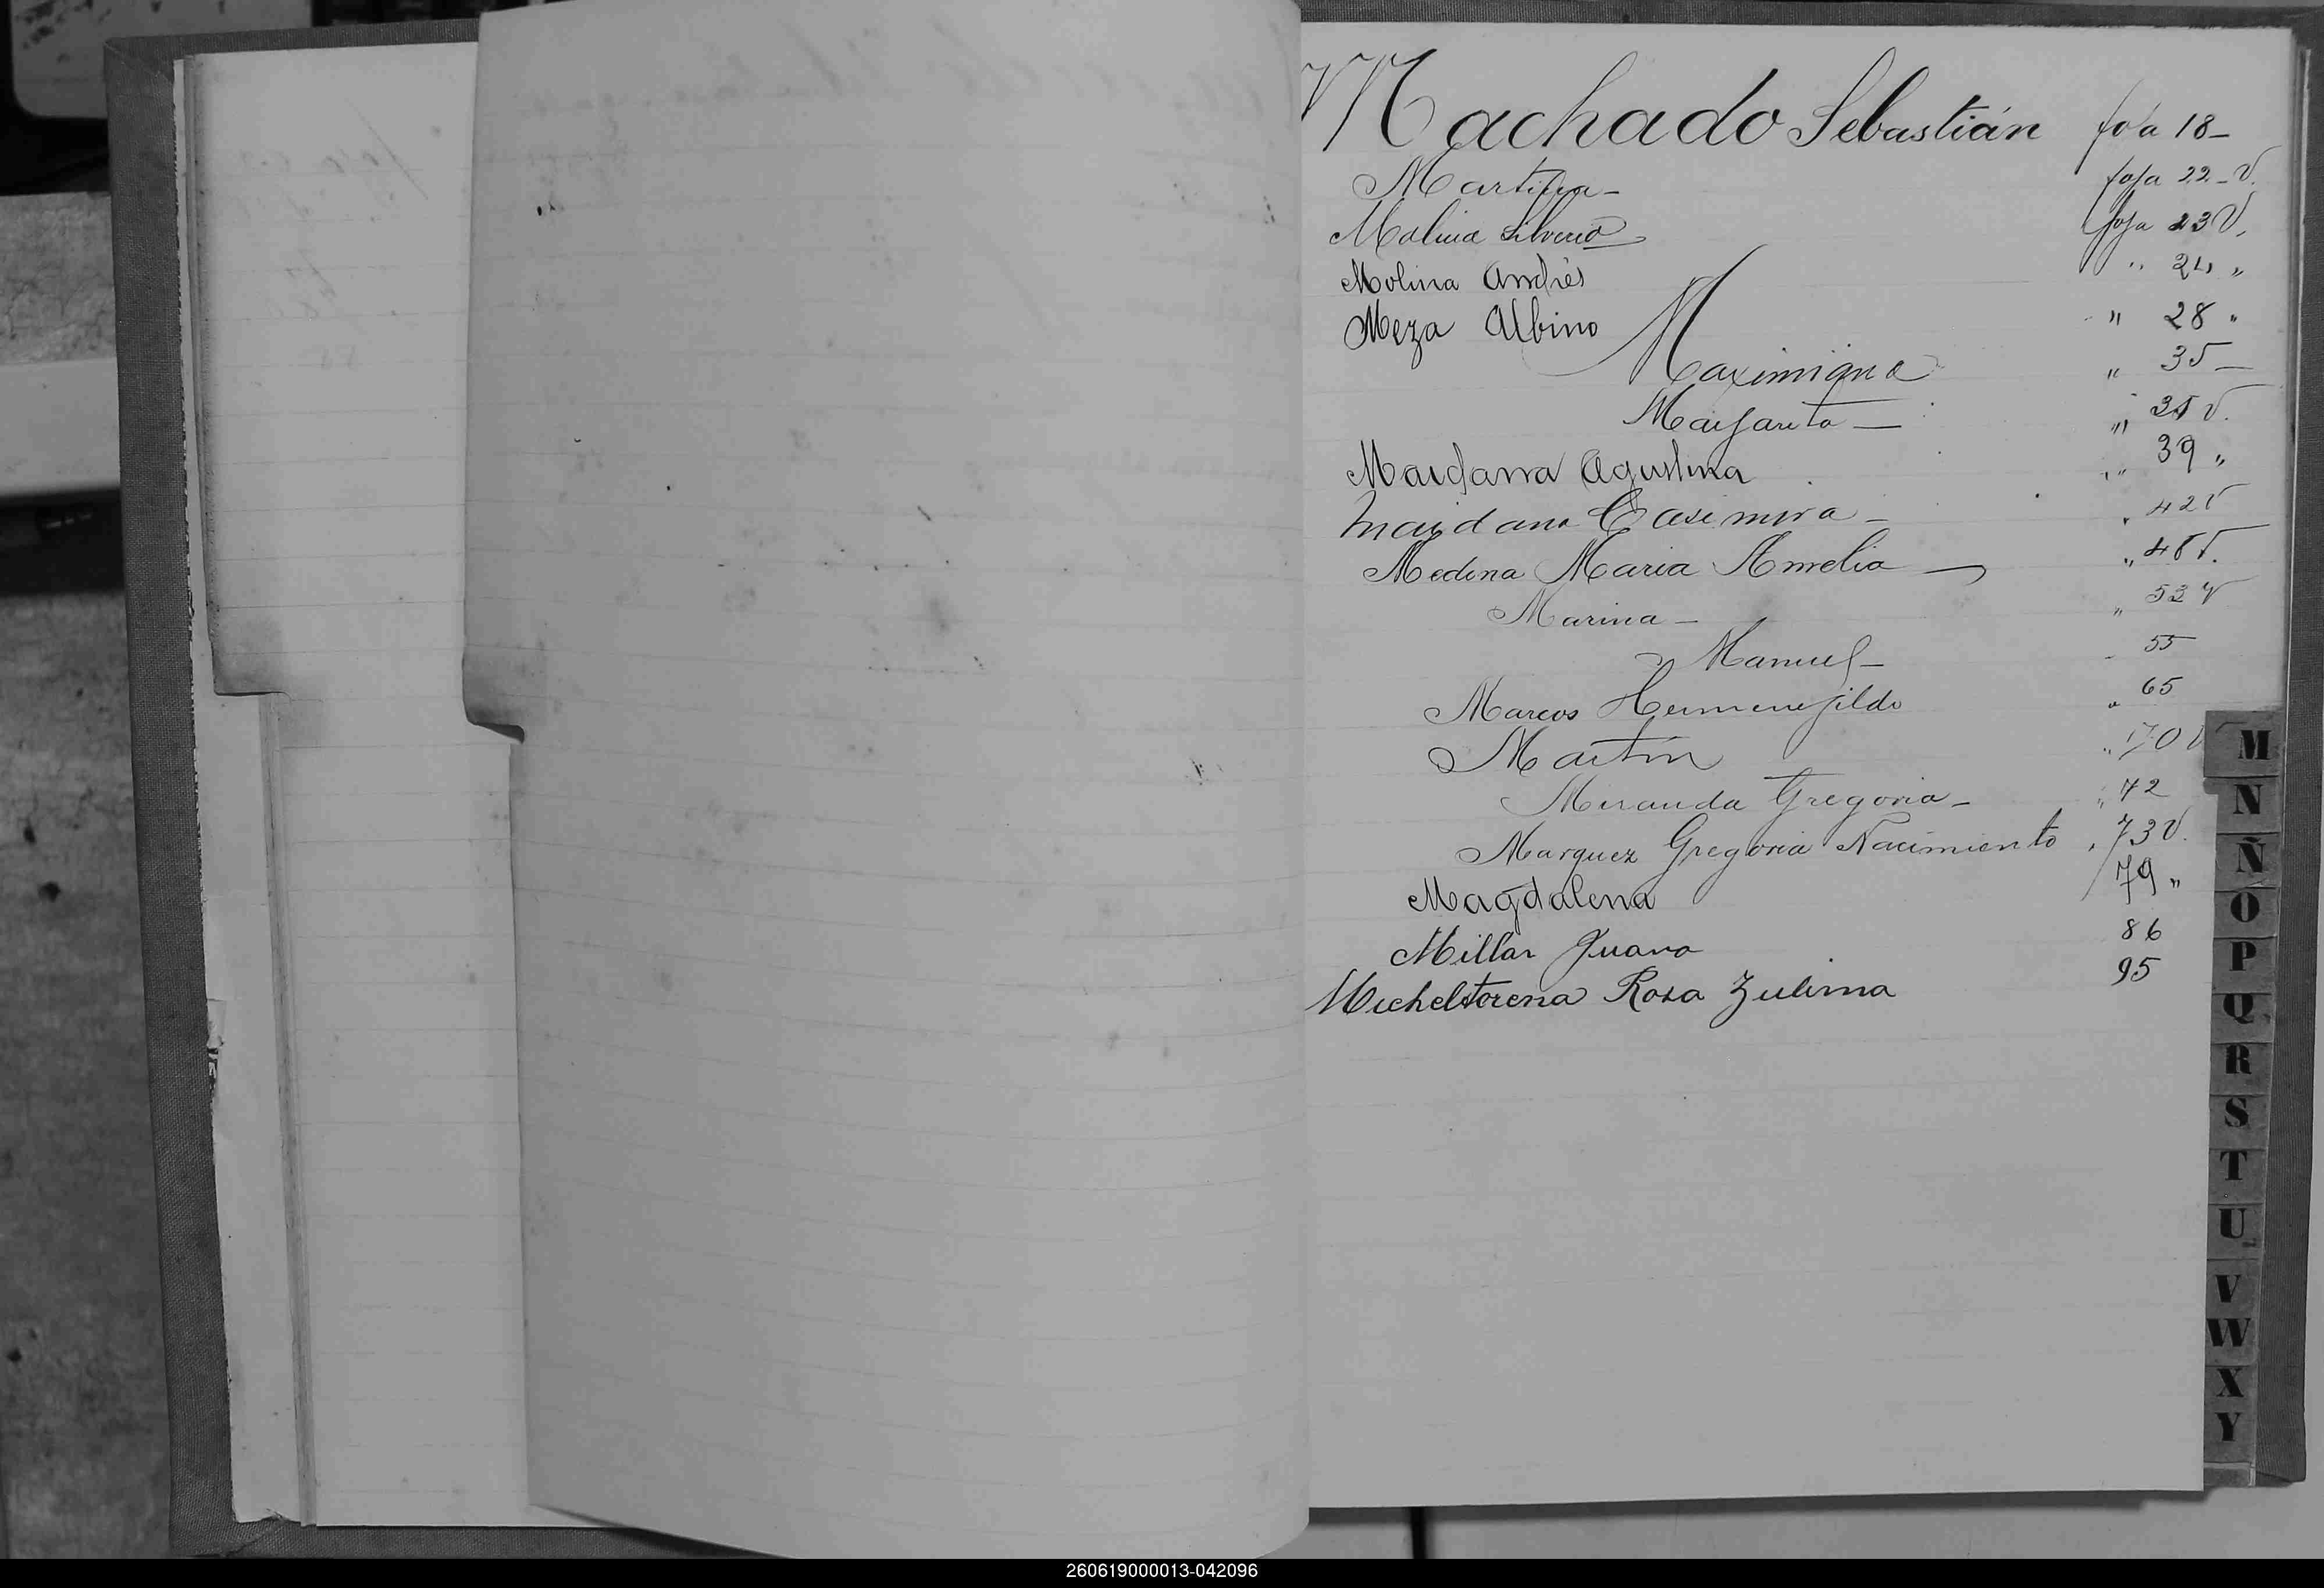 Machado Sebastián foja 18-
Martina - foja 22-V.
Molina Silverio foja 23 V.
Molina Andrés " 24 "
Meza Albino " 28 "
Maximiana " 35 -
Margarita - " 35 V.
Maidana Agustina " 39 "
Maidana Casimira - " 42 V
Medina Maria Amelia - " 48 V.
Marina - " 52 V
Manuel - 55
Marcos Hermenejildo " 65
Martín " 70 V
Miranda Gregoria - " 72
Marquez Gregoria Nacimiento " 73 V.
Magdalena 79 "
Millar Juana 86
Micheltorena Rosa Zulima 95
M
N
Ñ
O
P
Q
R
S
T
U
V
W
X
Y
260619000013-042096